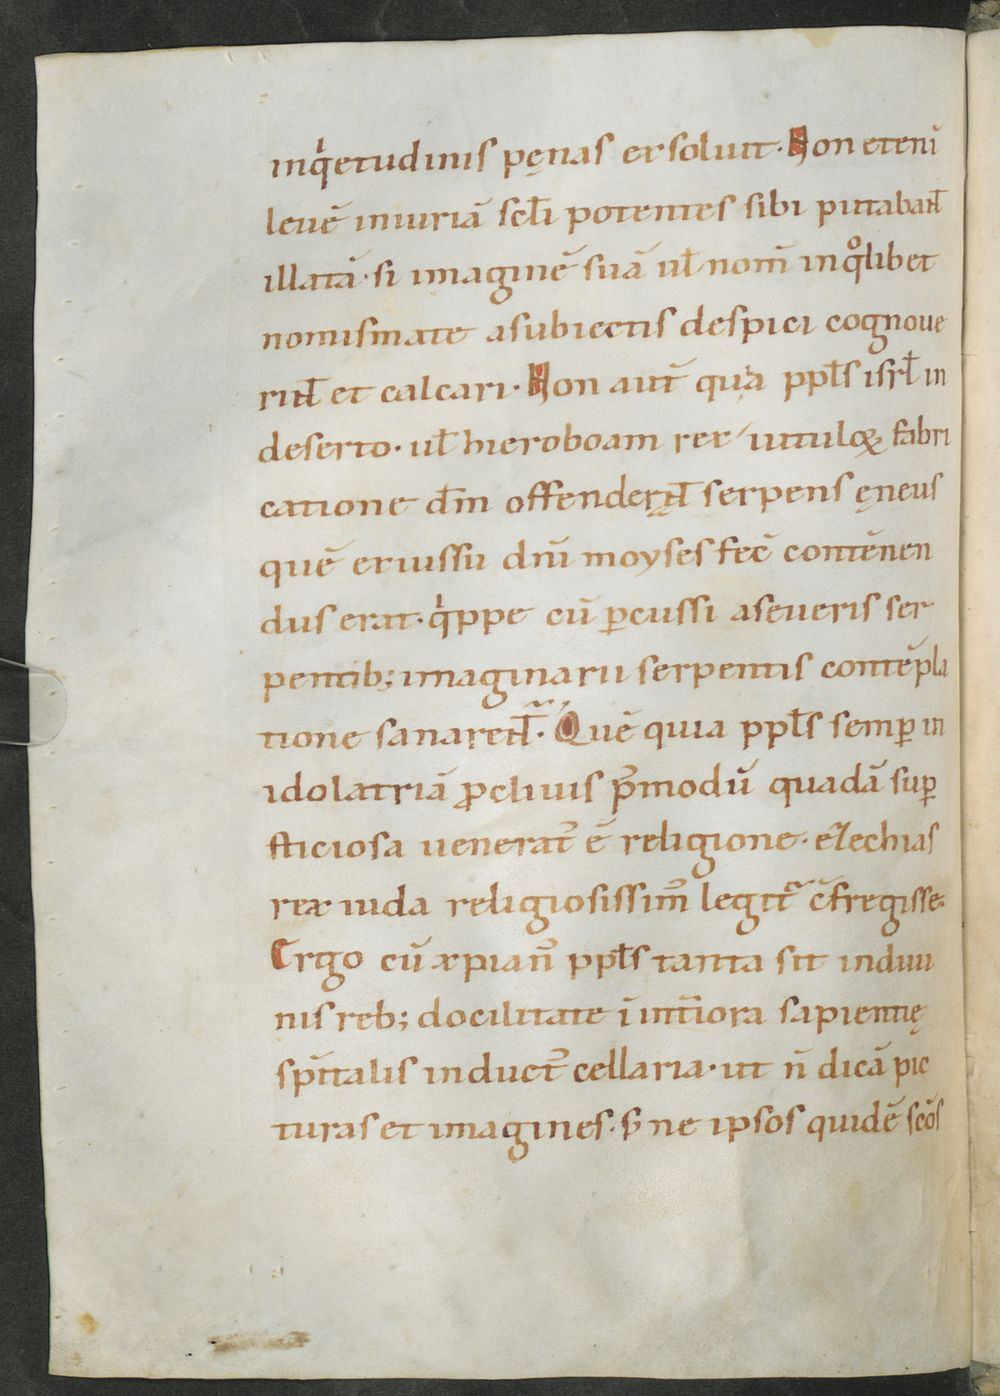 inq̍etudinis pęnas exsoluit. Non etenī
leuē iniuriā scłi potentes sibi putabant̄
illatā. si imaginē suā uł nom̄ inq̊libet
nomismate asubiectis despici cognoue
rint̄ et calcari. Non aut̄ quia ppłs isrł in
deserto. uł hieroboam rex uituloꝝ fabri
catione dm̄ offenderunt̄ serpens ęneus
quē exiussu dn̄i moyses fec̄ contēnen
dus erat. q̍ppe cū ꝑcussi aseueris ser
pentib; imaginarii serpentis contēpla
tione sanarent̄. Quē quia ppłs semꝑ in
idolatriā ꝓcliuis p̄̓modū quadā suꝑ
sticiosa ueneratꝰ ē religione. ezechias
rex iuda religiosissimꝰ legit̄ cf̄regisse.
Ergo cū xpianꝰ ppłs tanta sit indiui
nis reb; docilitate ī int̄iora sapientię
sp̄italis inductꝰ cellaria. ut n̄ dicā pic
turas et imagines. s; ne ipsos quidē scōs